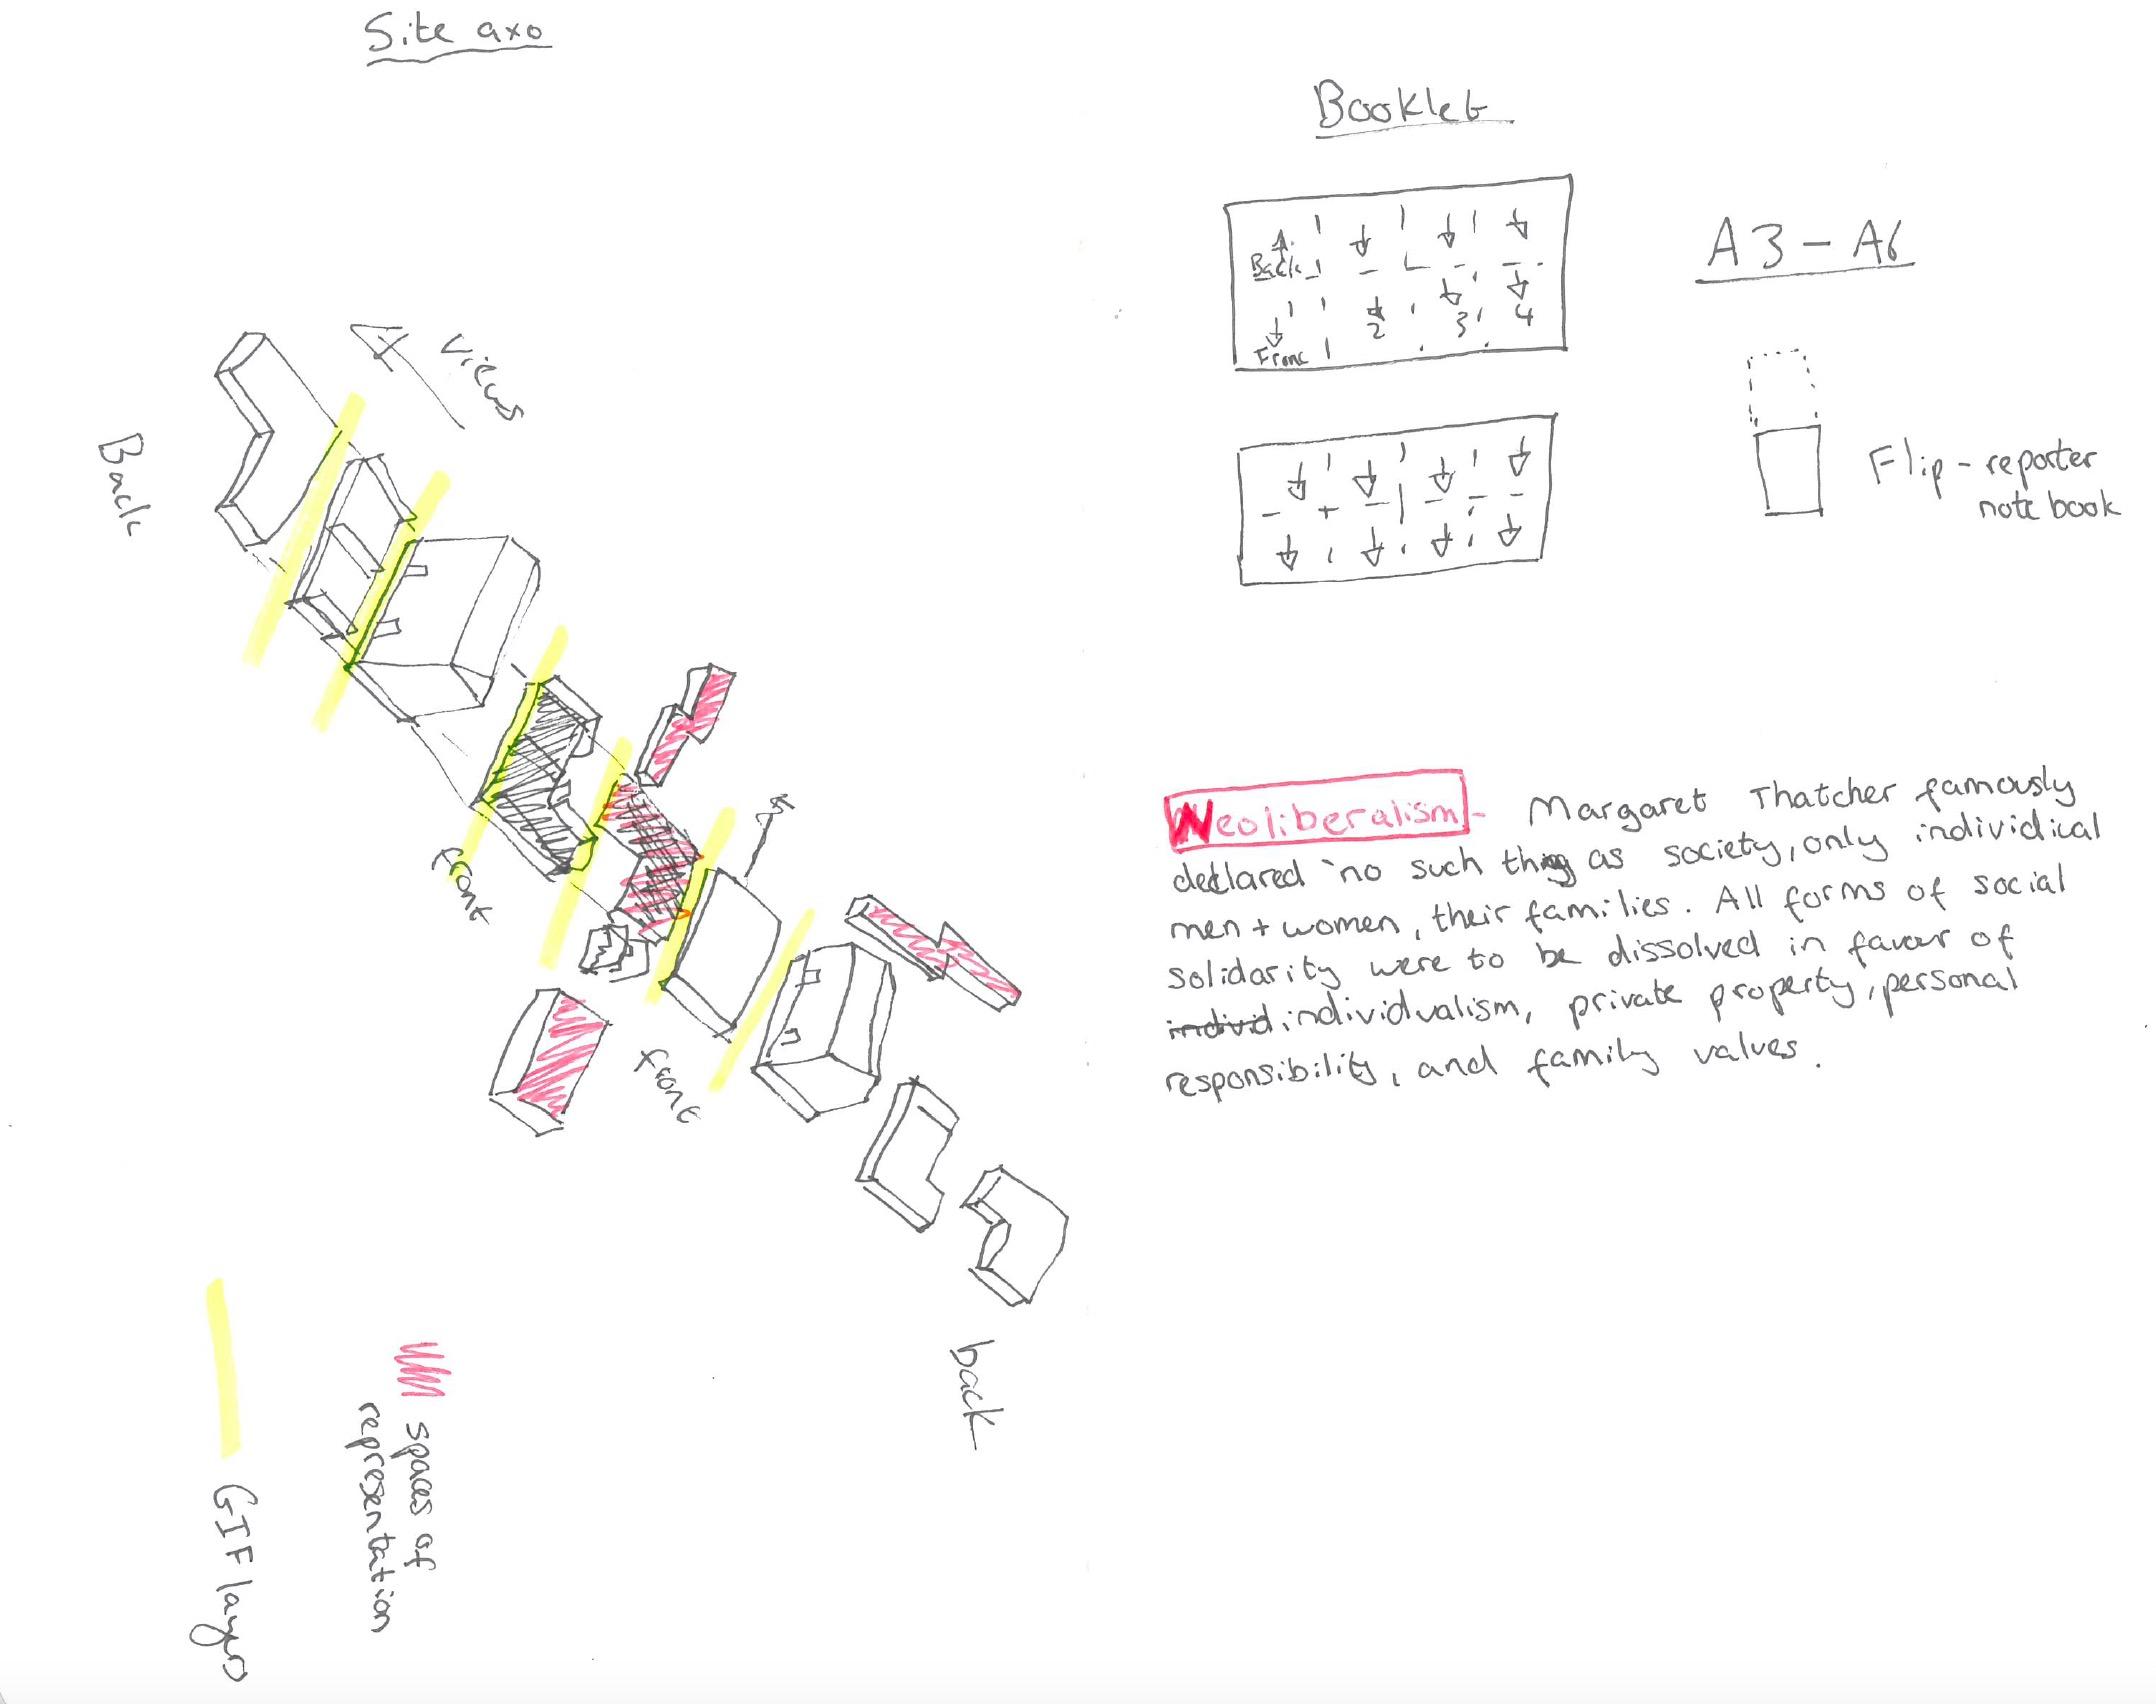 Site axo
views
Back
Front
Front
back
spaces of
representation
GIF layers
Booklet
Back
Front 1 2 3 4
A3 - A6
Flip - reporter
note book
Neoliberalism - Margaret Thatcher famously
declared 'no such thing as society, only individical
men + women, their families. All forms of social
solidarity were to be dissolved in favor of
individ individualism, private property, personal
responsibility, and family values.